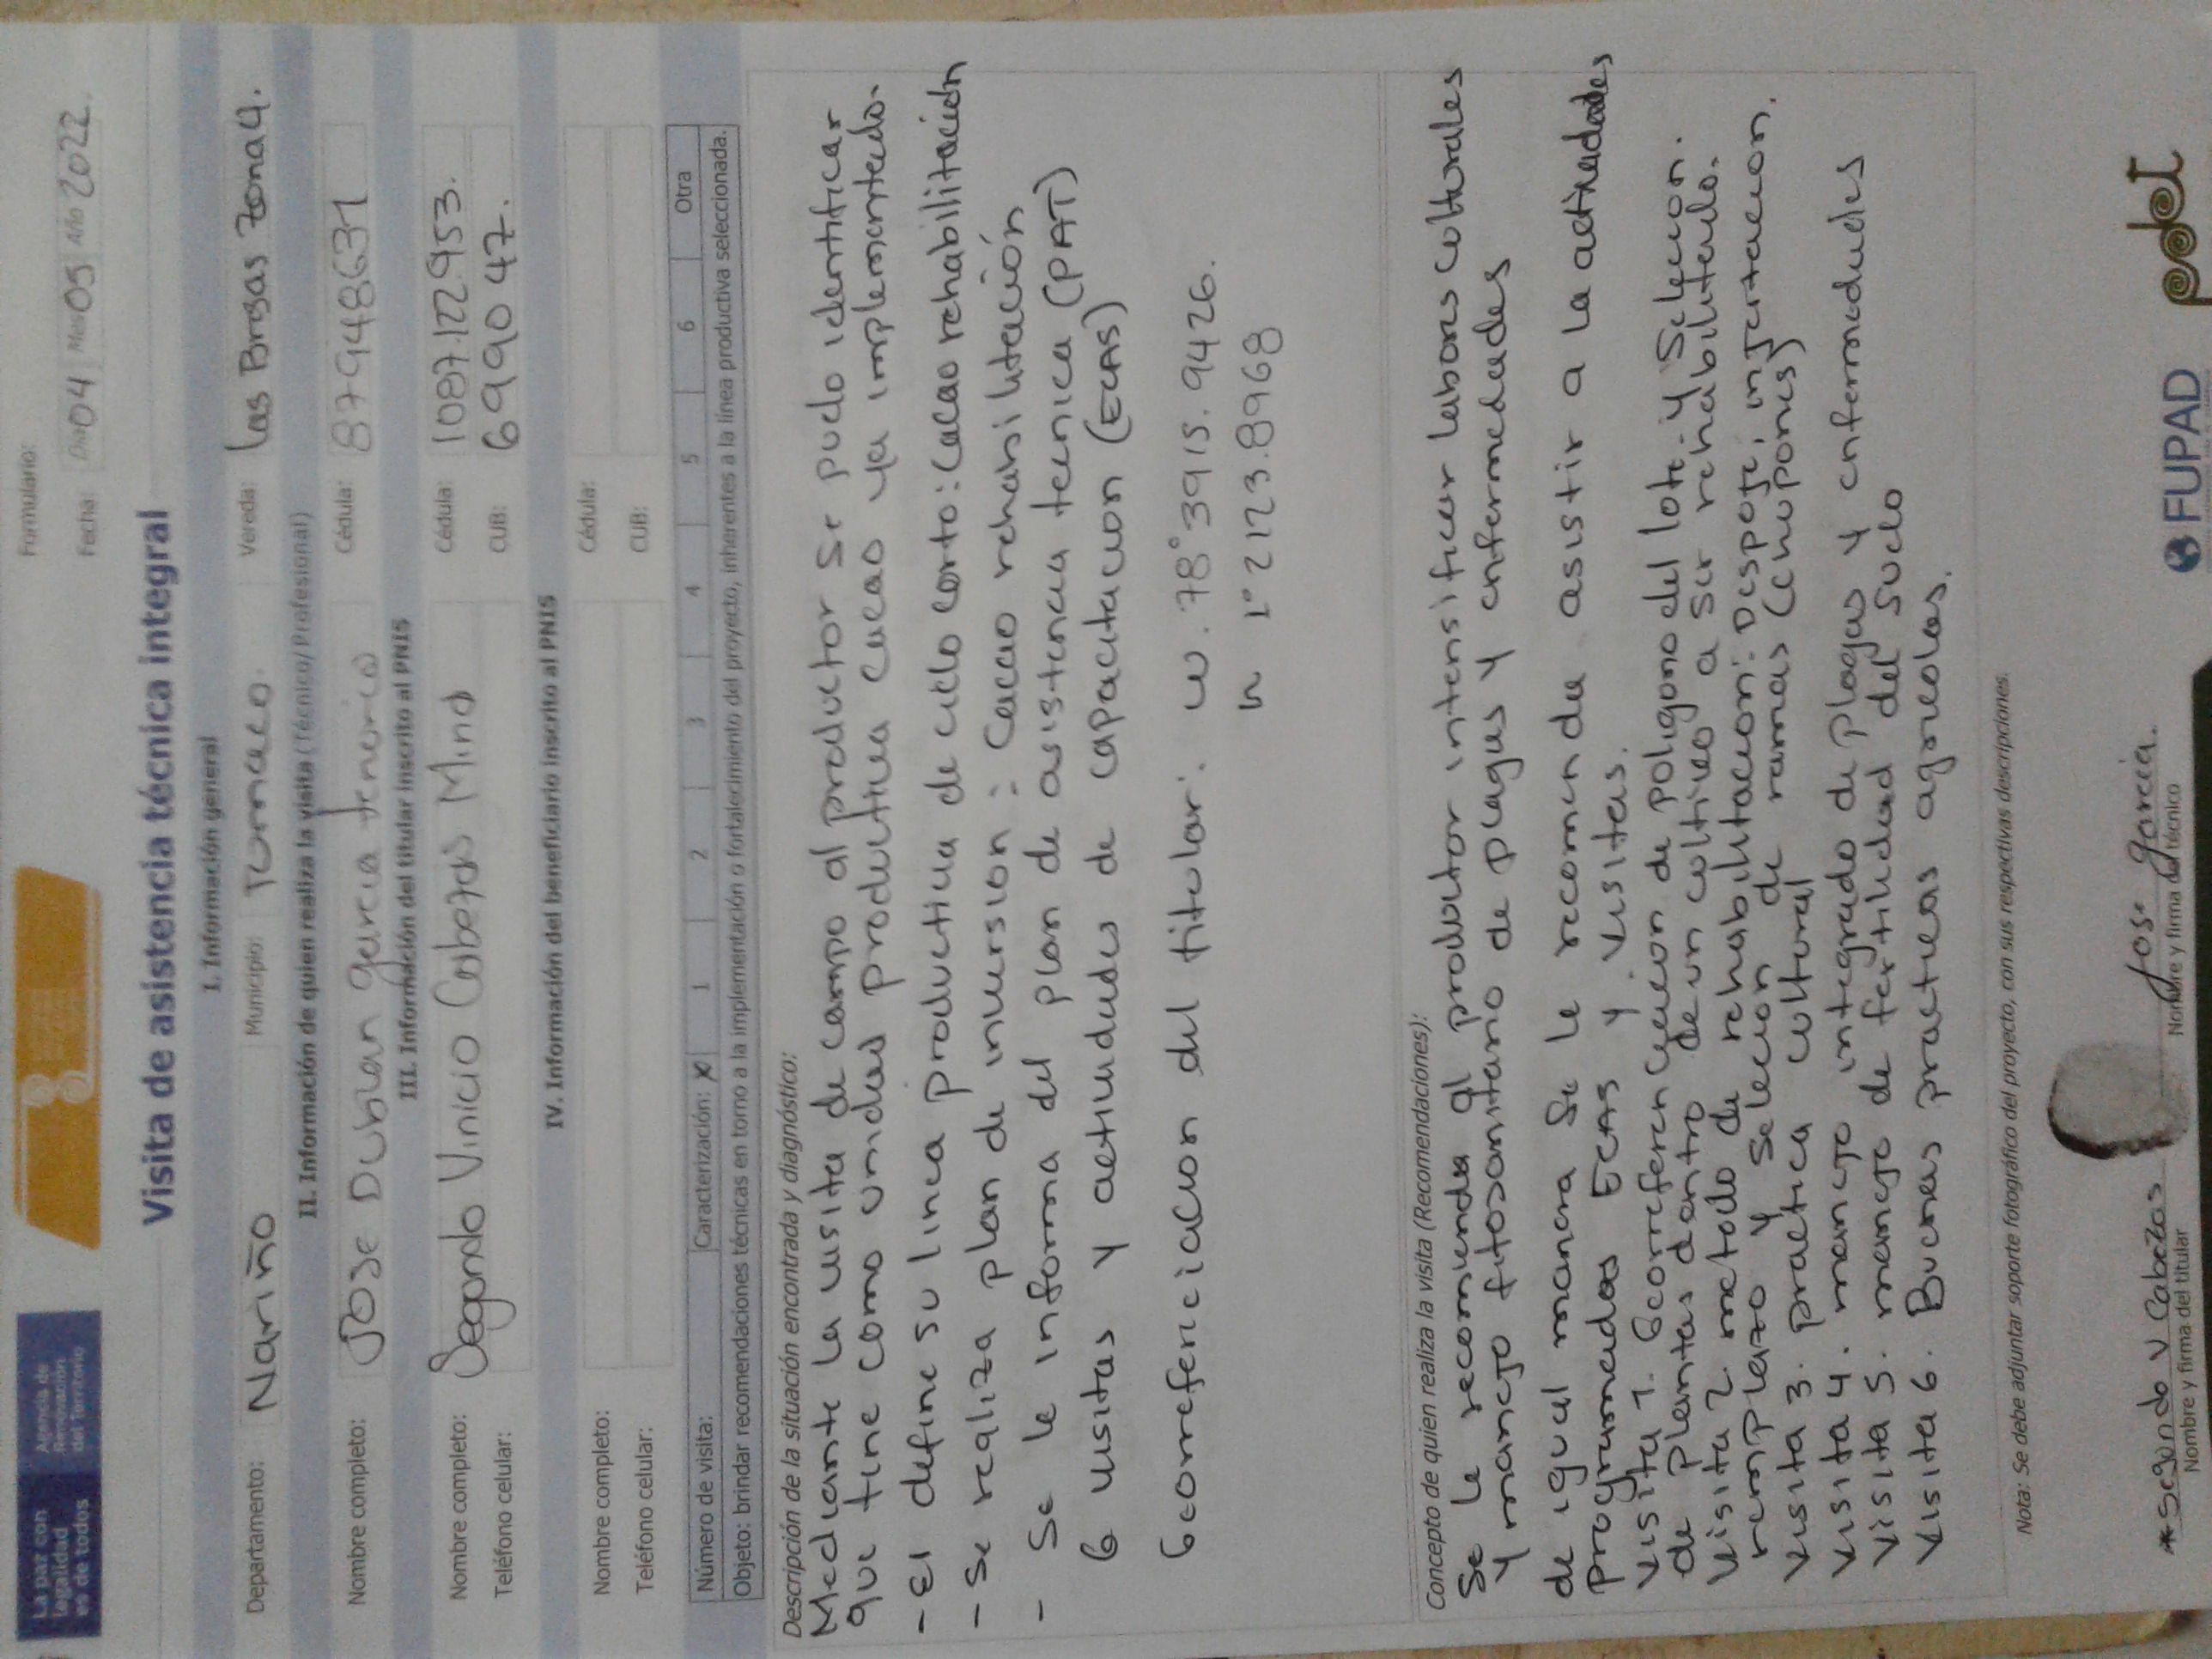 La paz con
legalidad
es de todos
Agencia de
Renovación
del Territorio
Formulario:
Fecha: Día 04 Mes 05 Año 2022
Visita de asistencia técnica integral
I. Información general
Departamento: Nariño Municipio: Tumaco. Vereda: las Brisas Zona 4.
II. Información de quien realiza la visita (Técnico/ Profesional)
Nombre completo: Jose Dubian garcia tenorio Cédula: 87948631
III. Información del titular inscrito al PNIS
Nombre completo: Segundo Vinicio Cabezas Mina Cédula: 1087.122.953.
Teléfono celular: CUB: 699047.
IV. Información del beneficiario inscrito al PNIS
Nombre completo: Cédula:
Teléfono celular: CUB:
Número de visita: Caracterización: X 1 2 3 4 5 6 Otra
Objeto: brindar recomendaciones técnicas en torno a la implementación o fortalecimiento del proyecto, inherentes a la línea productiva seleccionada.
Descripción de la situación encontrada y diagnóstico:
Mediante la visita de campo al productor se pudo identificar
que tiene como unidad productiva cacao ya implementado.
- El define su linea productiva de ciclo corto: Cacao rehabilitación
- Se realiza plan de inversion: Cacao rehabilitación
- Se le informa del plan de asistencia tecnica (PAT)
6 visitas y actividades de capacitacion (ECAS)
Georrefericiacion del titular: w. 78° 3915.9426.
N 1° 2123.8968
Concepto de quien realiza la visita (Recomendaciones):
Se le recomienda al productor intensificar labores culturales
y manejo fitosanitario de plagas y enfermedades
de igual manera se le recomienda asistir a la actividades
programadas ECAS y visitas.
Visita 1. Georreferenciacion de poligono del lote. y Selecion.
de plantas dentro de un cultivo a ser rehabilitado.
Visita 2. metodo de rehabilitacion: Despoje, injertacion.
remplazo y selecion de ramas (chupones)
Visita 3. practica cultural
Visita 4. manejo integrado de plagas y enfermedades
Visita 5. manejo de fertilidad del suelo
Visita 6. Buenas practicas agricolas.
Nota: Se debe adjuntar soporte fotográfico del proyecto, con sus respectivas descripciones.
*segundo V Cabezas
Nombre y firma del titular
Jose garcia.
Nombre y firma del técnico
FUPAD
pdet